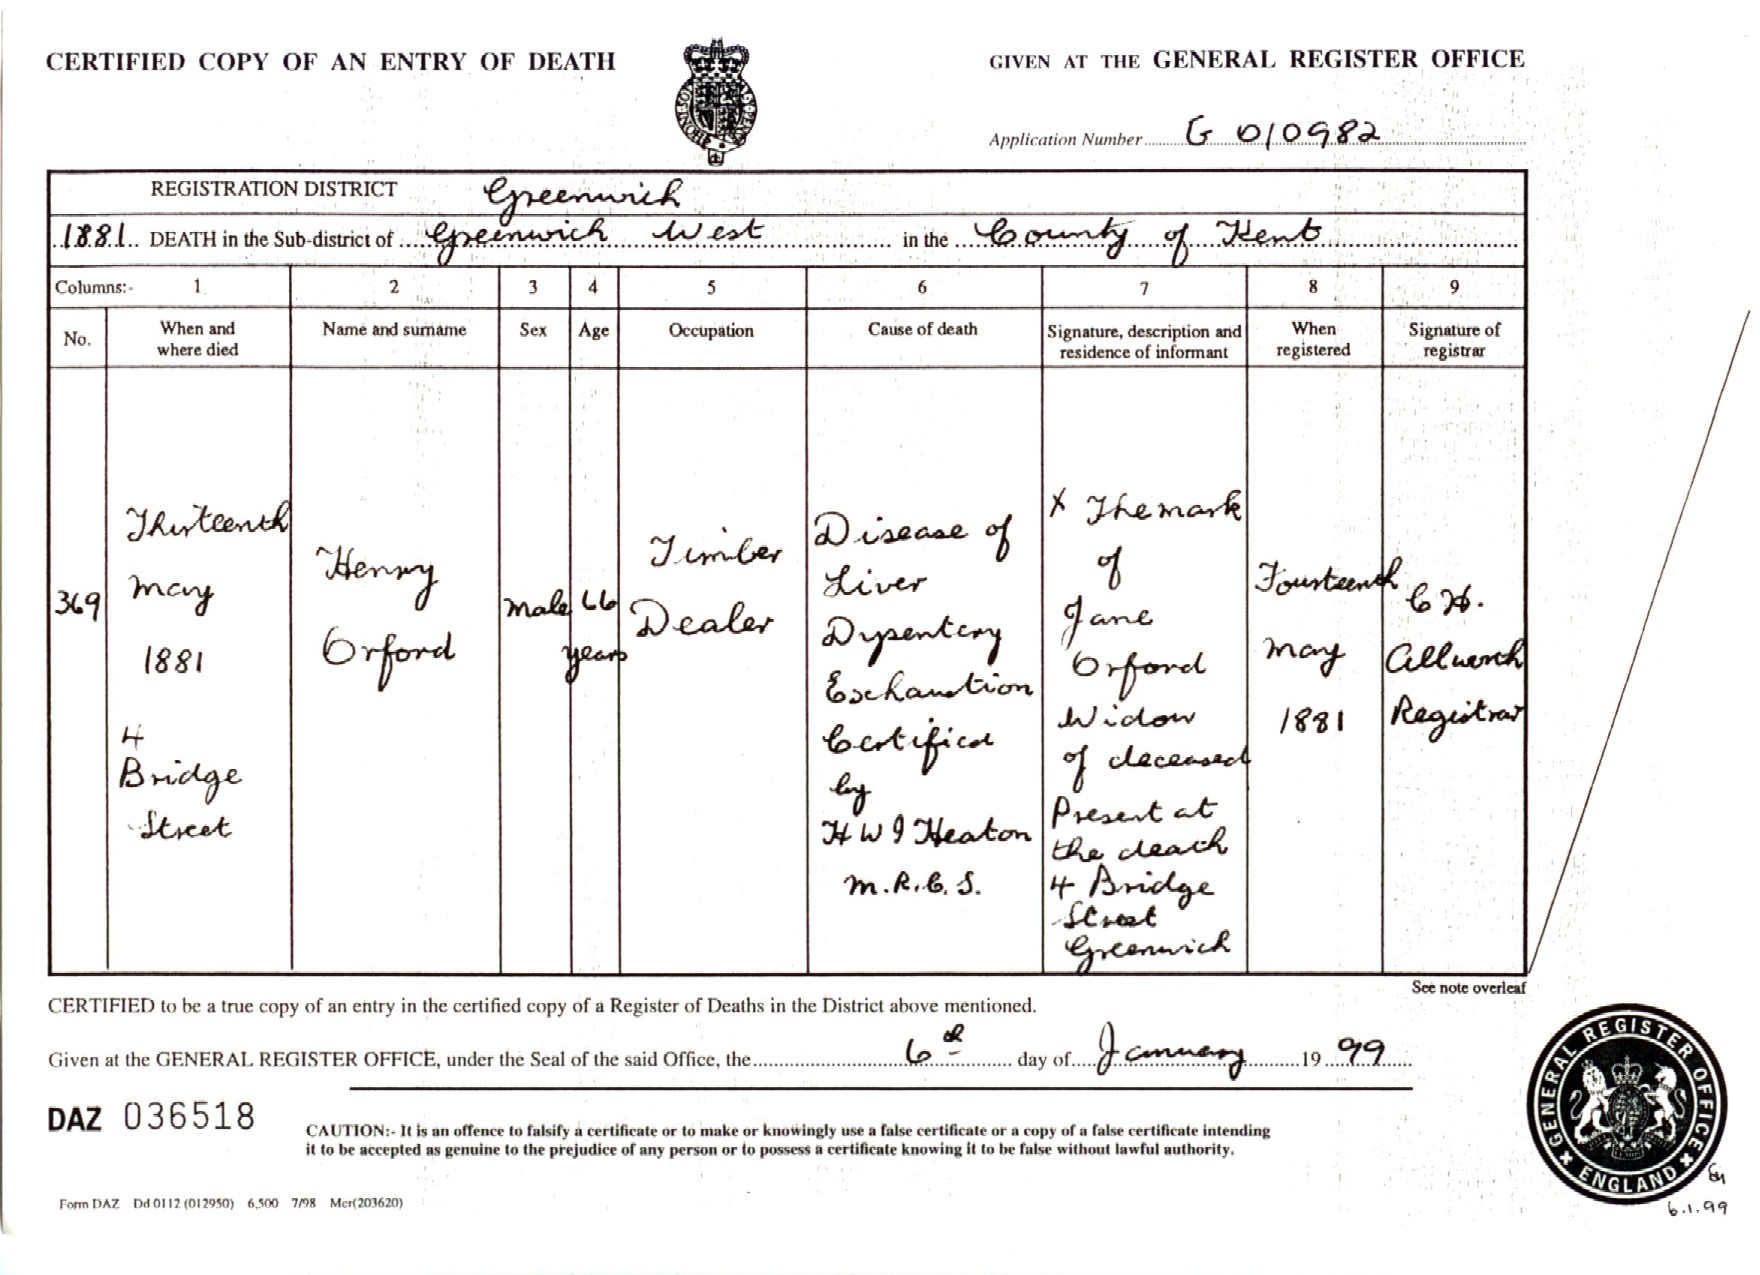 CERTIFIED COPY OF AN ENTRY OF DEATH
GIVEN AT THE GENERAL REGISTER OFFICE
Application Number G 010982
REGISTRATION DISTRICT Greenwich
1881 DEATH in the Sub-district of Greenwich West in the County of Kent
Columns:- 1 2 3 4 5 6 7 8 9
No.
When and
where died
Name and surname
Sex
Age
Occupation
Cause of death
Signature, description and
residence of informant
When
registered
Signature of
registrar
369
Thirteenth
May
1881
4
Bridge
Street
Henry
Orford
Male
66
years
Timber
Dealer
Disease of
Liver
Dysentery
Exhaustion
Certified
by
H W J Heaton
M.R.C.S.
X The mark
of
Jane
Orford
Widow
of deceased
Present at
the death
4 Bridge
Street
Greenwich
Fourteenth
May
1881
C H.
Allworth
Registrar
See note overleaf
CERTIFIED to be a true copy of an entry in the certified copy of a Register of Deaths in the District above mentioned.
Given at the GENERAL REGISTER OFFICE, under the Seal of the said Office, the 6th day of January 19 99
DAZ 036518
CAUTION:- It is an offence to falsify a certificate or to make or knowingly use a false certificate or a copy of a false certificate intending
it to be accepted as genuine to the prejudice of any person or to possess a certificate knowing it to be false without lawful authority.
Form DAZ Dd 0112 (012950) 6,500 7/98 Mcr(203620)
GENERAL REGISTER OFFICE
ENGLAND
6.1.99